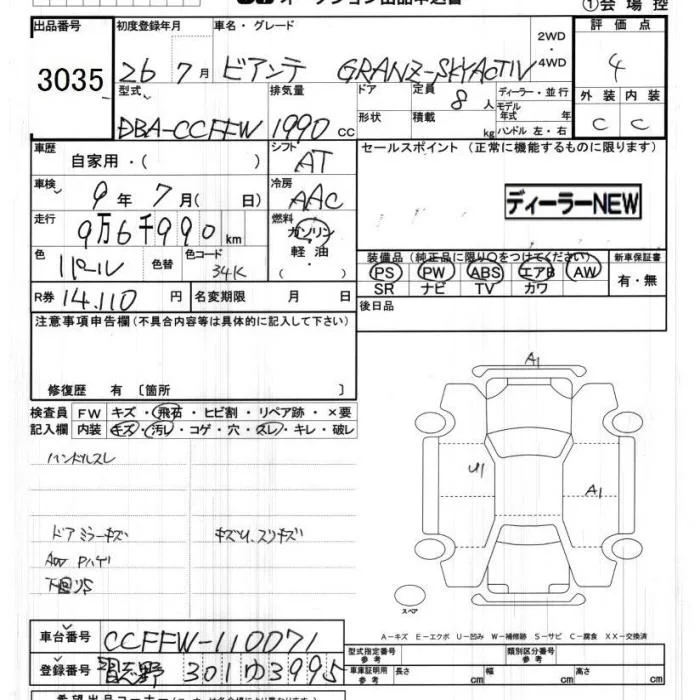 オークション出品申込書
①会場控
出品番号
3035
初度登録年月
26 7月
車名・グレード
ビアンテ GRANZ-SKYACTIV
2WD・4WD
評価点
4
外装 内装
C C
型式
DBA-CCFFW
排気量
1990 cc
ドア
形状
定員
8人
積載
kg
ディーラー・並行
モデル年式 年
ハンドル 左・右
車歴
自家用・( )
シフト
AT
セールスポイント (正常に機能するものに限ります)
ディーラーNEW
車検
9年7月( 日)
冷房
AAC
走行
9万6千990km
燃料
ガソリン・軽油・( )
色
パール
色替
色コード
34K
装備品 (純正品に限り○をつけてください)
PS PW ABS エアB AW
SR ナビ TV カワ
新車保証書
有・無
R券 14,110円
名変期限 月 日
後日品
注意事項申告欄(不具合内容等は具体的に記入して下さい)
修復歴 有 〔箇所 〕
検査員記入欄
FW キズ・飛石・ヒビ割・リペア跡・×要
内装 キズ・汚レ・コゲ・穴・スレ・キレ・破レ
ハンドルスレ
ドアミラーキズ キズU、スリキズ
AW Pハゲ
下回りS
A1
U1
A1
スペア
A-キズ E-エクボ U-凹み W-補修跡 S-サビ C-腐食 XX-交換済
車台番号
CCFFW-110071
登録番号
習志野 301 ゆ3995
型式指定番号
参考
類別区分番号
参考
車庫証明用
参考
長さ cm 幅 cm 高さ cm
希望出品コーナー